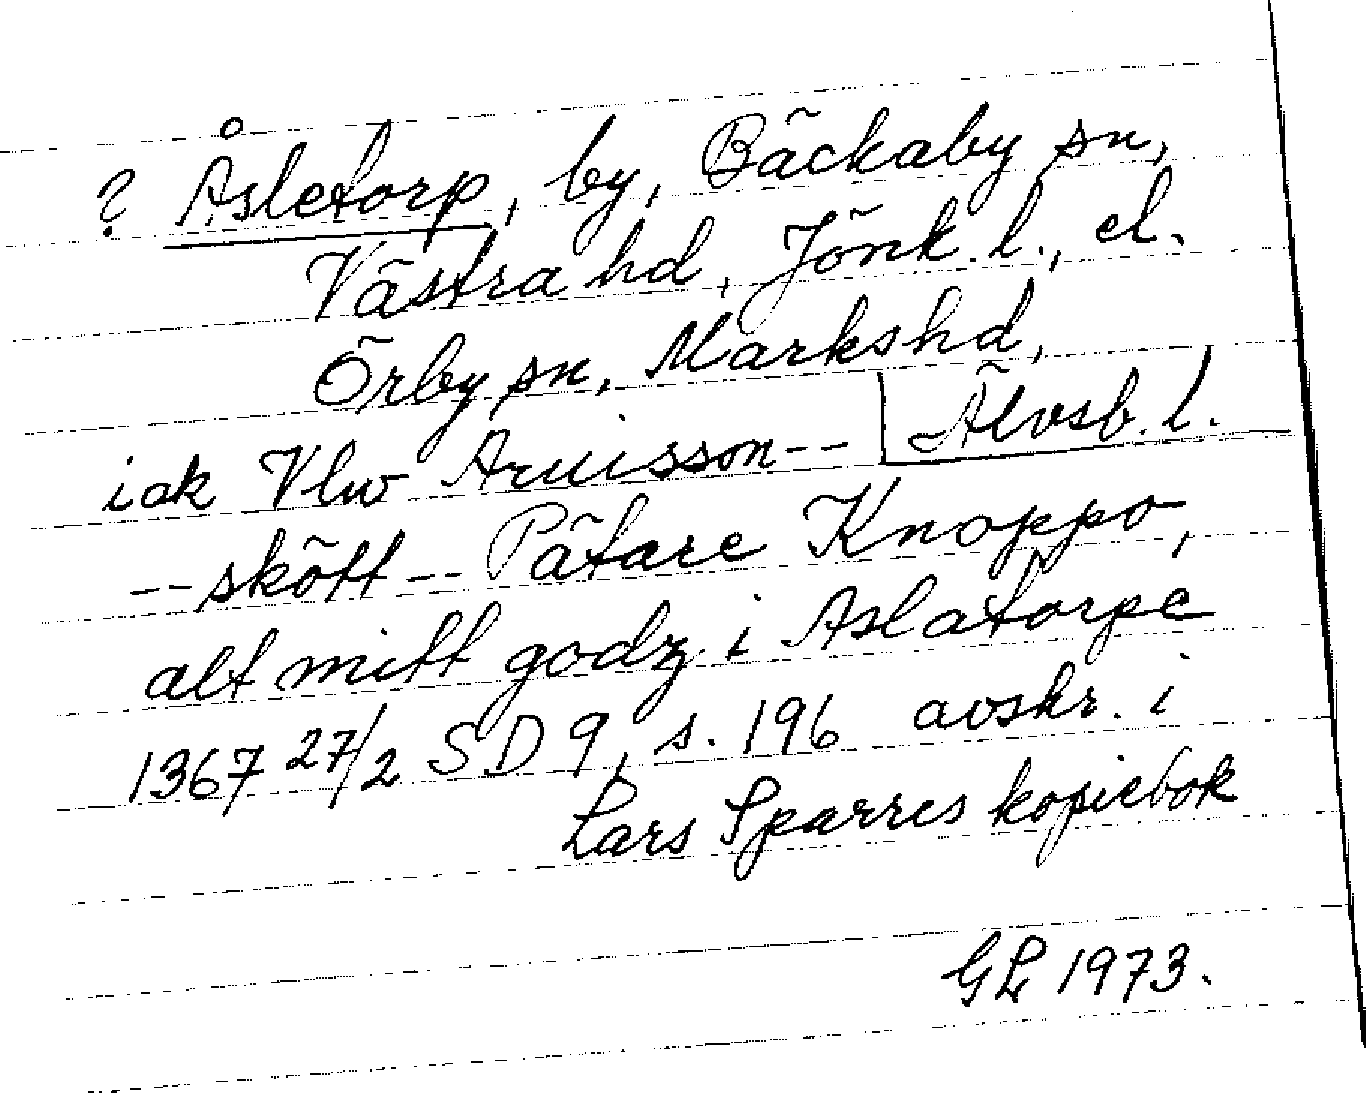 ? Åsletorp, by, Bäckaby sn,
Västra hd, Jönk. l., el.
Örby sn, Markshd,
Älvsb. l.
iak Vlw Aruisson--
--skött-- Pätare Knoppo,
alt mitt godz i Aslatorpe
1367 27/2 SD 9, s. 196 avskr. i
Lars Sparres kopiebok
GL 1973.